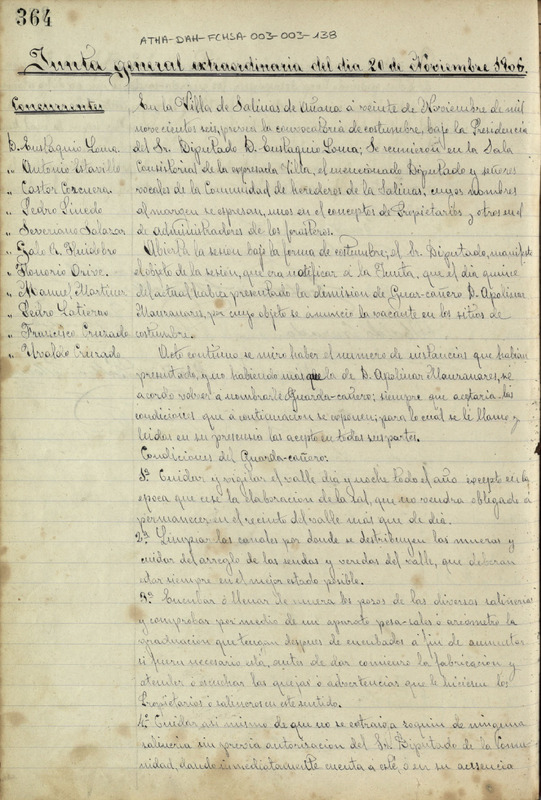 364
ATHA-DAH-FCHSA-003-003-138
Junta general extraordinaria del dia 20 de Noviembre 1906.
Concurrentes
D. Eustaquio Loma.
" Antonio Estavillo
" Castor Corcuera
" Pedro Pinedo
" Severiano Salazar
" Galo R. Huidobro
" Honorio Orive.
" Manuel Martinez
" Pedro Latierro
" Francisco Cruzado
" Ubaldo Cruzado
En la Villa de Salinas de Añana á veinte de Noviembre de mil
novecientos seis, previa la convocatoria de costumbre, bajo la Presidencia
del Sr. Diputado D. Eustaquio Loma; Se reunieron en la Sala
Consistorial de la expresada Villa, el mencionado Diputado y señores
vocales de la Comunidad de herederos de las Salinas, cuyos nombres
al margen se espresan, unos en el concepto de Propietarios y otros en el
de Administradores de los forasteros.
Abierta la sesión bajo la forma de costumbre; el Sr. Diputado, manifestó
el objeto de la sesión, que era notificar á la Junta, que el dia quince
del actual habia presentado la dimision de Guar-cañero D. Apolinar
Mauranares, por cuyo objeto se anunció la vacante en los sitios de
costumbre.
Acto continuo se miro haber el numero de instancias que habian
presentado, y no habiendo más que la de D. Apolinar Mauranares, se
acordo volver á nombrarle Guarda-cañero; siempre que aceptaria las
condiciones que á continuacion se esponen; para lo cual se le llamo y
leidas en su presencia las acepto en todas sus partes.
Condiciones del Guarda-cañero:
1ª Cuidar y vigilar el valle dia y noche todo el año excepto en la
epoca que cesa la elaboracion de la sal, que no vendra obligado á
permanecer en el recinto del valle más que de dia.
2ª Limpiar los canales por donde se destribuyen las mueras y
cuidar del arreglo de las sendas y veredas del valle, que deberan
estar siempre en el mejor estado posible.
3ª Encubar ó llenar de muera los pozos de las diversas salinerias
y comprobar por medio de un aparato pesa-sales ó areometro la
graduacion que tengan despues de encubados á fin de aumentar
si fuera necesario esta, antes de dar comienzo la fabricacion y
atender ó escuchar las quejas ó advertencias que le hiciesen los
Propietarios ó salineros en este sentido.
4ª Cuidar asi mismo de que no se extraiga de ninguna
salineria sin previa autorizacion del Sr. Diputado de la Comu-
nidad, dando inmediatamente cuenta a este, ó en su ausencia